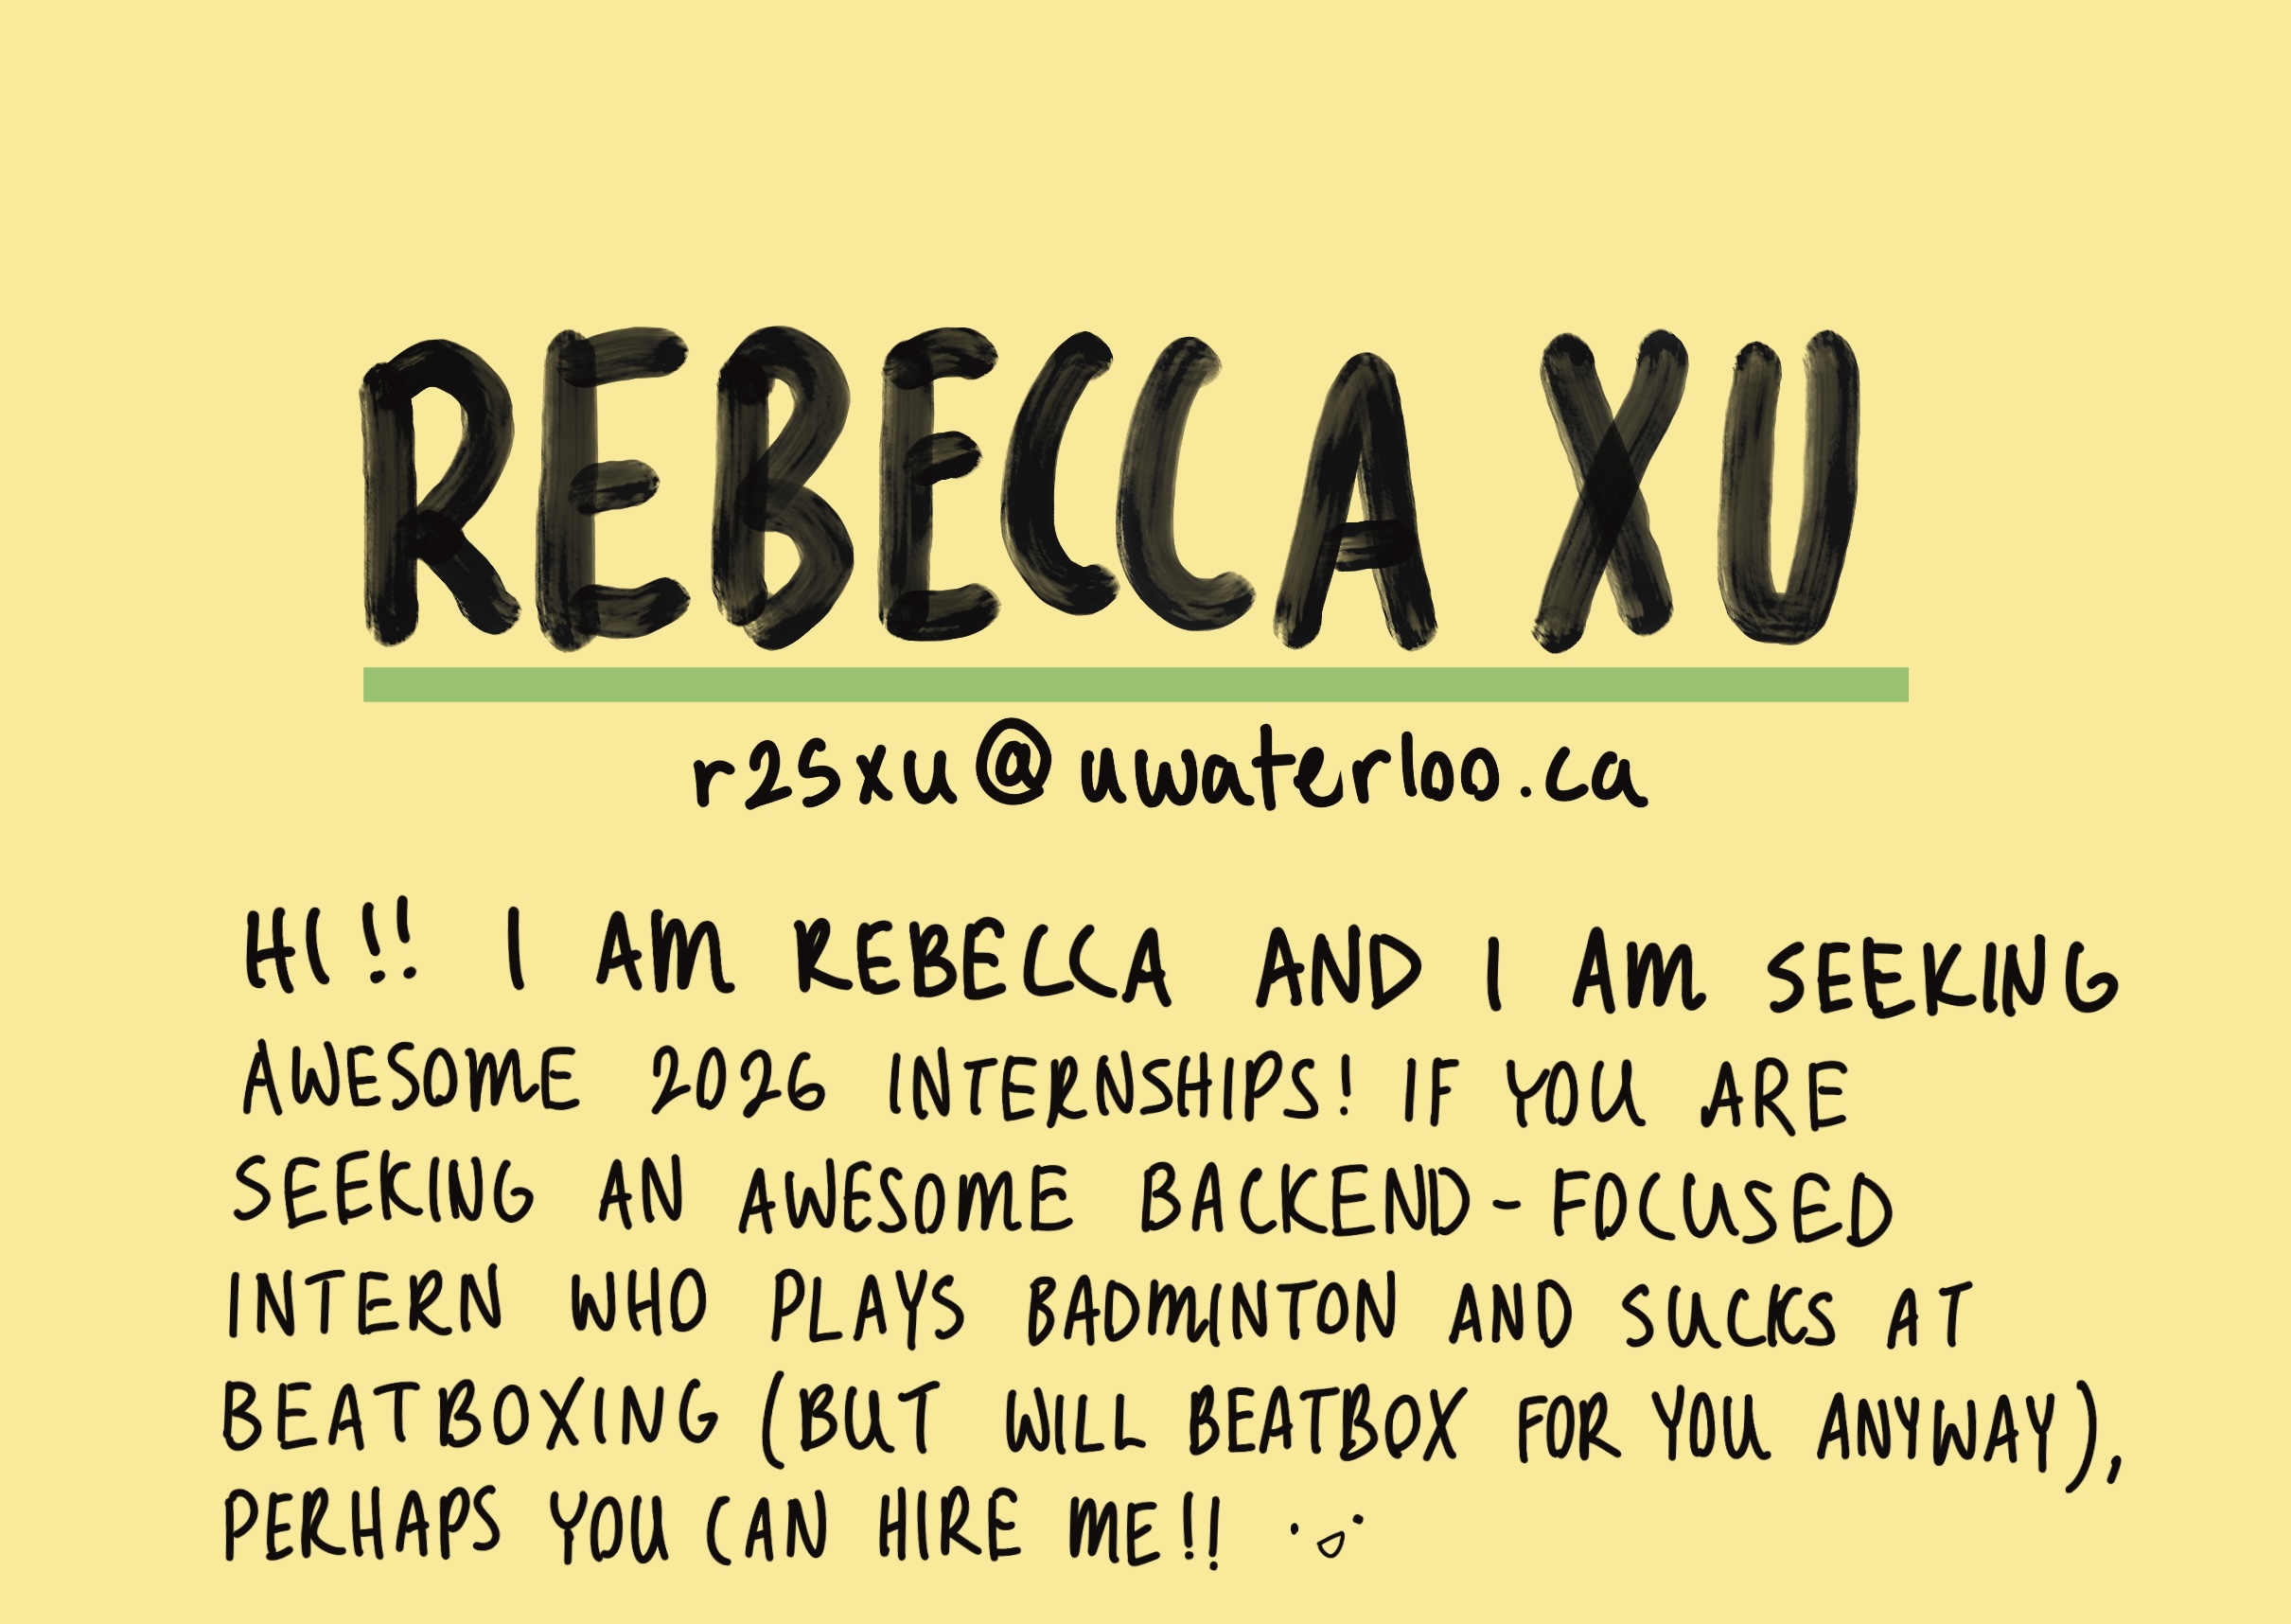 REBECCA XU
r2sxu@uwaterloo.ca
HI!! I AM REBECCA AND I AM SEEKING
AWESOME 2026 INTERNSHIPS! IF YOU ARE
SEEKING AN AWESOME BACKEND-FOCUSED
INTERN WHO PLAYS BADMINTON AND SUCKS AT
BEATBOXING (BUT WILL BEATBOX FOR YOU ANYWAY),
PERHAPS YOU CAN HIRE ME!!